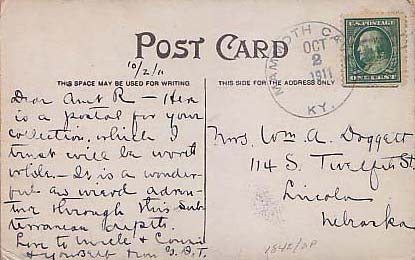 POST CARD
10/2/11
THIS SPACE MAY BE USED FOR WRITING.
THIS SIDE FOR THE ADDRESS ONLY
MAMMOTH CAVE
OCT
2
1911
KY.
U.S. POSTAGE
ONE CENT
Dear Aunt R – Here
is a postal for your
collection, which I
trust will be worth
while – It is a wonder-
ful and wierd adven-
ture through this sub-
terranean depths.
Love to Uncle &
& yourself from
Mrs. Wm. A. Doggett
114 S. Twelfth St.
Lincoln
Nebraska